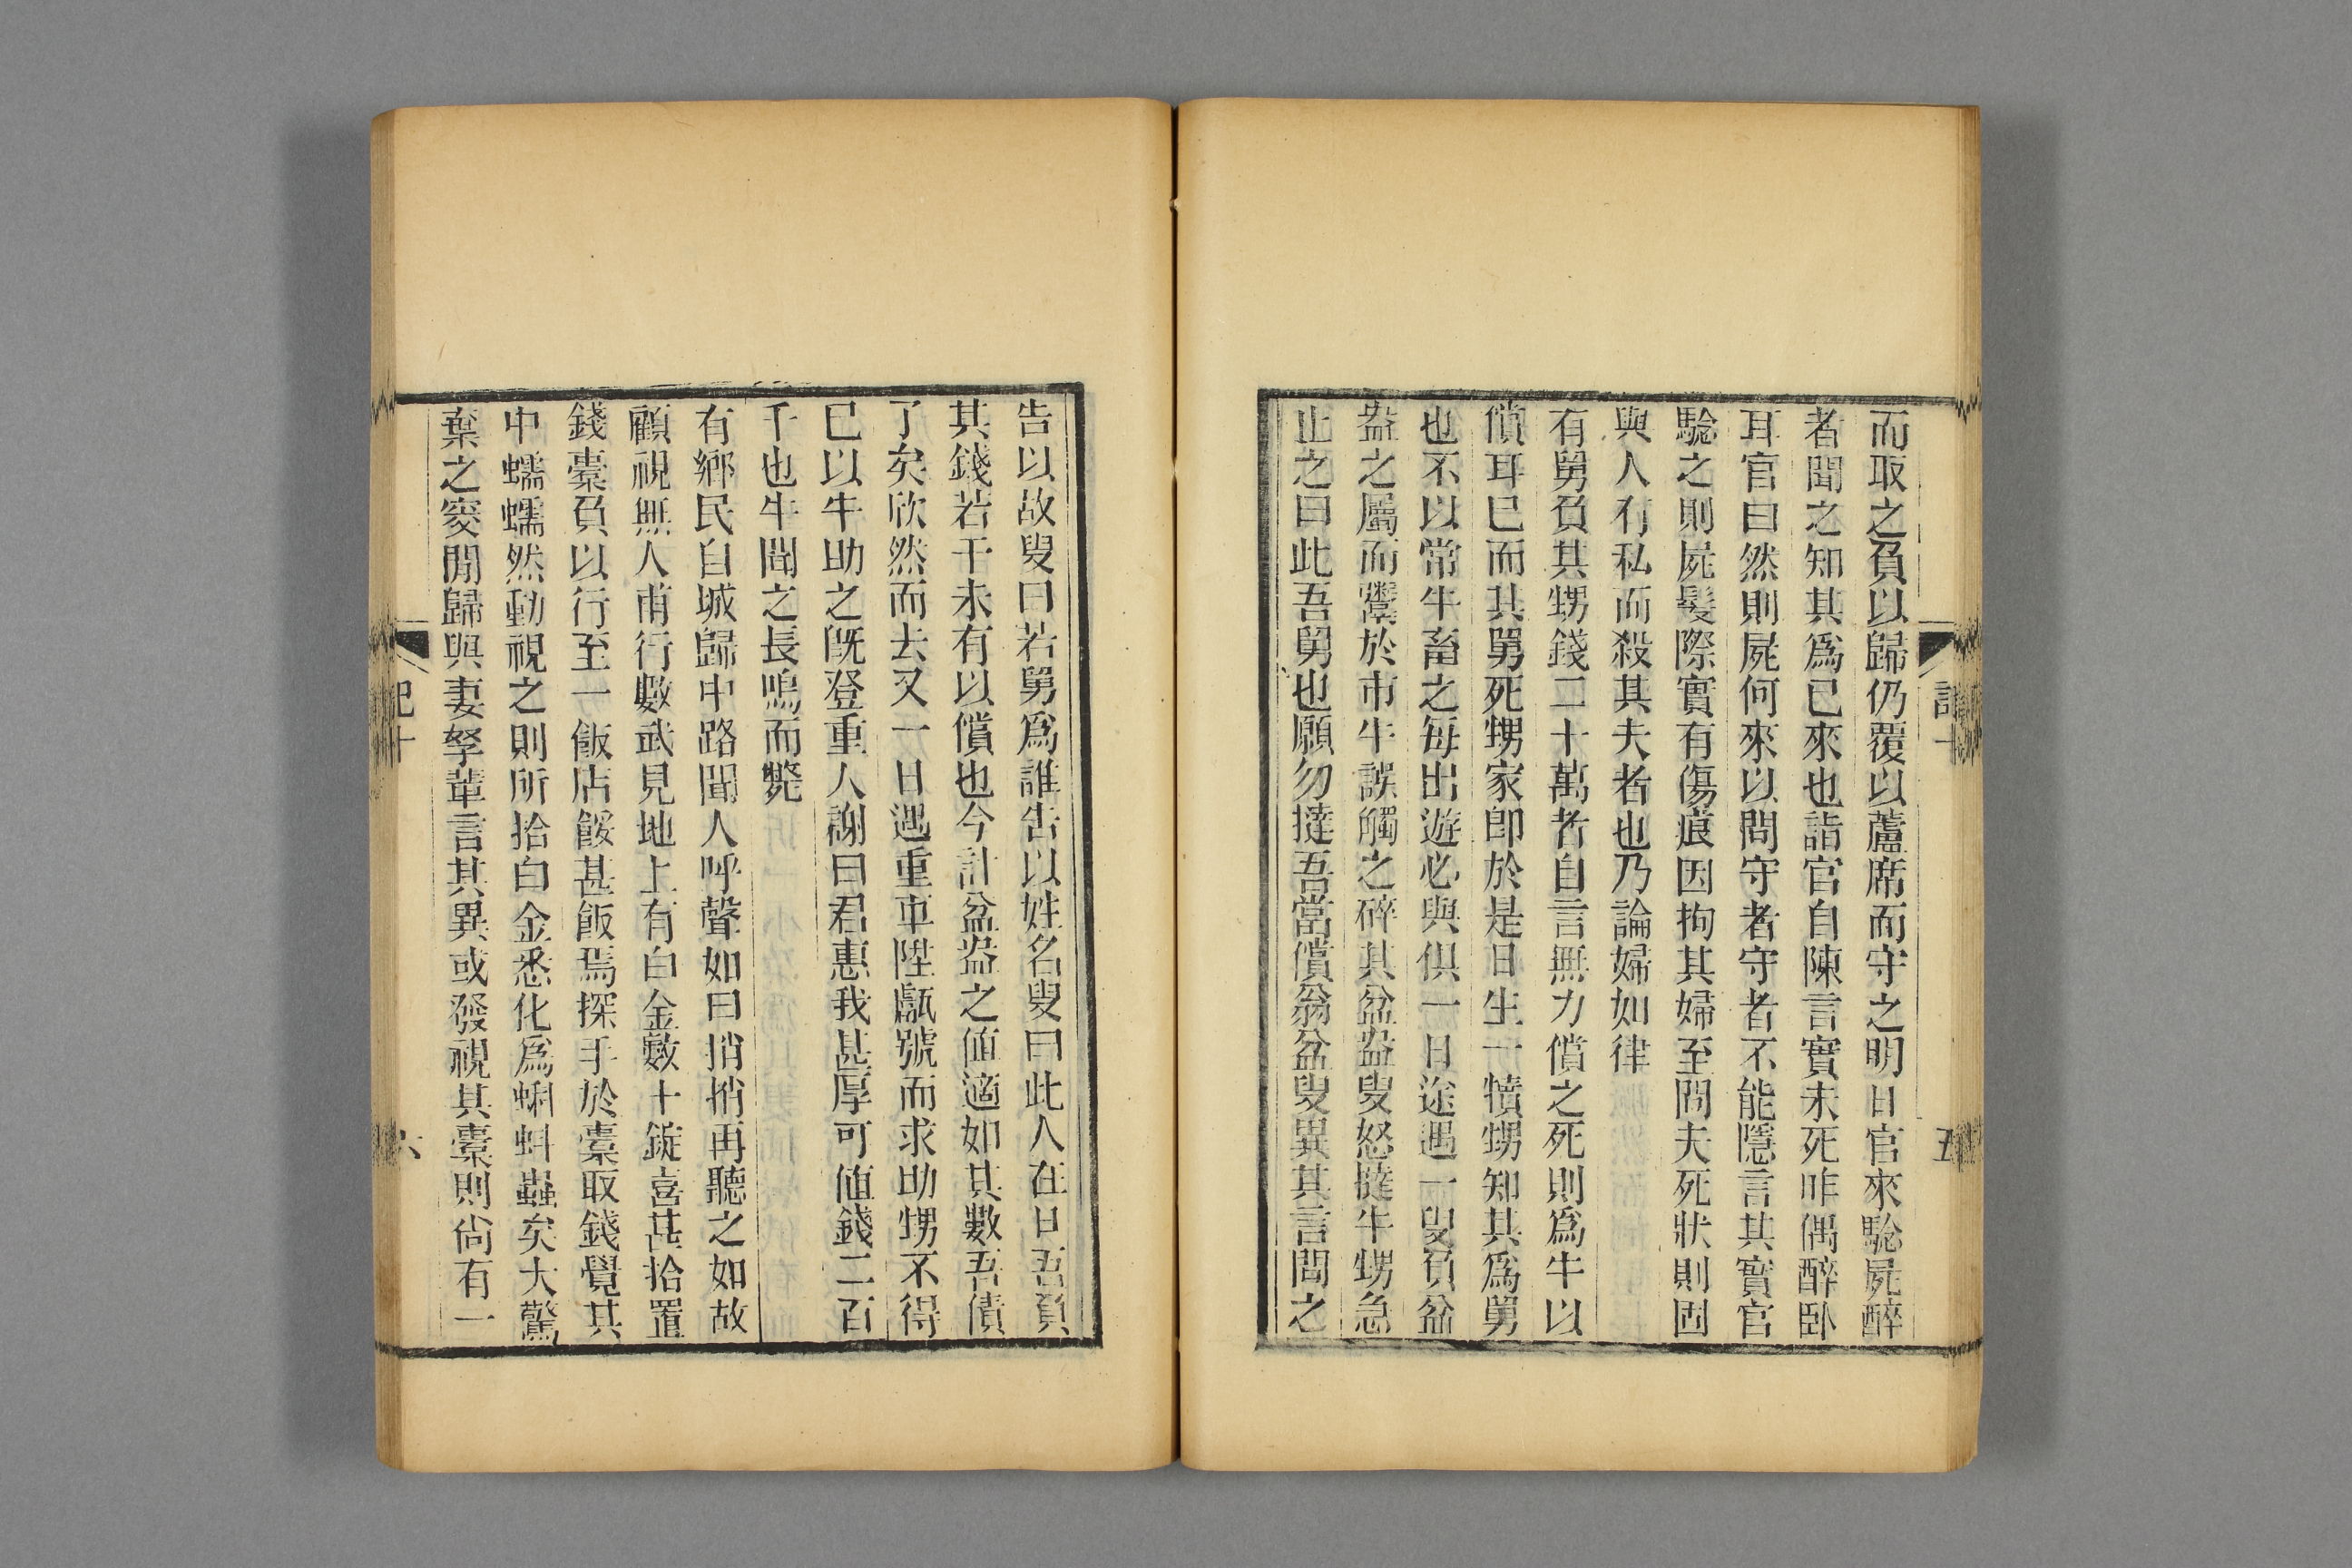 而取之負以歸仍覆以蘆席而守之明日官來騐屍醉
者聞之知其爲已來也詣官自陳言實未死昨偶醉卧
耳官曰然則屍何來以問守者守者不能隱言其實官
騐之則屍髮際實有傷痕因拘其婦至問夫死狀則固
與人有私而殺其夫者也乃論婦如律
有舅負其甥錢二十萬者自言無力償之死則爲牛以
償耳已而其舅死甥家卽於是日生一犢甥知其爲舅
也不以常牛畜之每出遊必與俱一日途遇一叟負盆
盎之屬而鬻於市牛誤觸之碎其盆盎叟怒撻牛甥急
止之曰此吾舅也願勿撻吾當償翁盆叟異其言問之
五
告以故叟曰若舅爲誰告以姓名叟曰此人在日吾負
其錢若干未有以償也今計盆盎之值適如其數吾債
了矣欣然而去又一日遇重車陞甗號而求助甥不得
已以牛助之旣登重人謝曰君惠我甚厚可値錢二百
千也牛聞之長鳴而斃
有鄉民自城歸中路聞人呼聲如曰捎捎再聽之如故
顧視無人甫行數武見地上有白金數十錠喜甚拾置
錢橐負以行至一飯店餒甚飯焉探手於橐取錢覺其
中蠕蠕然動視之則所拾白金悉化爲蝌蚪蟲矣大驚
棄之窔閒歸與妻孥輩言其異或發視其橐則尙有一
六